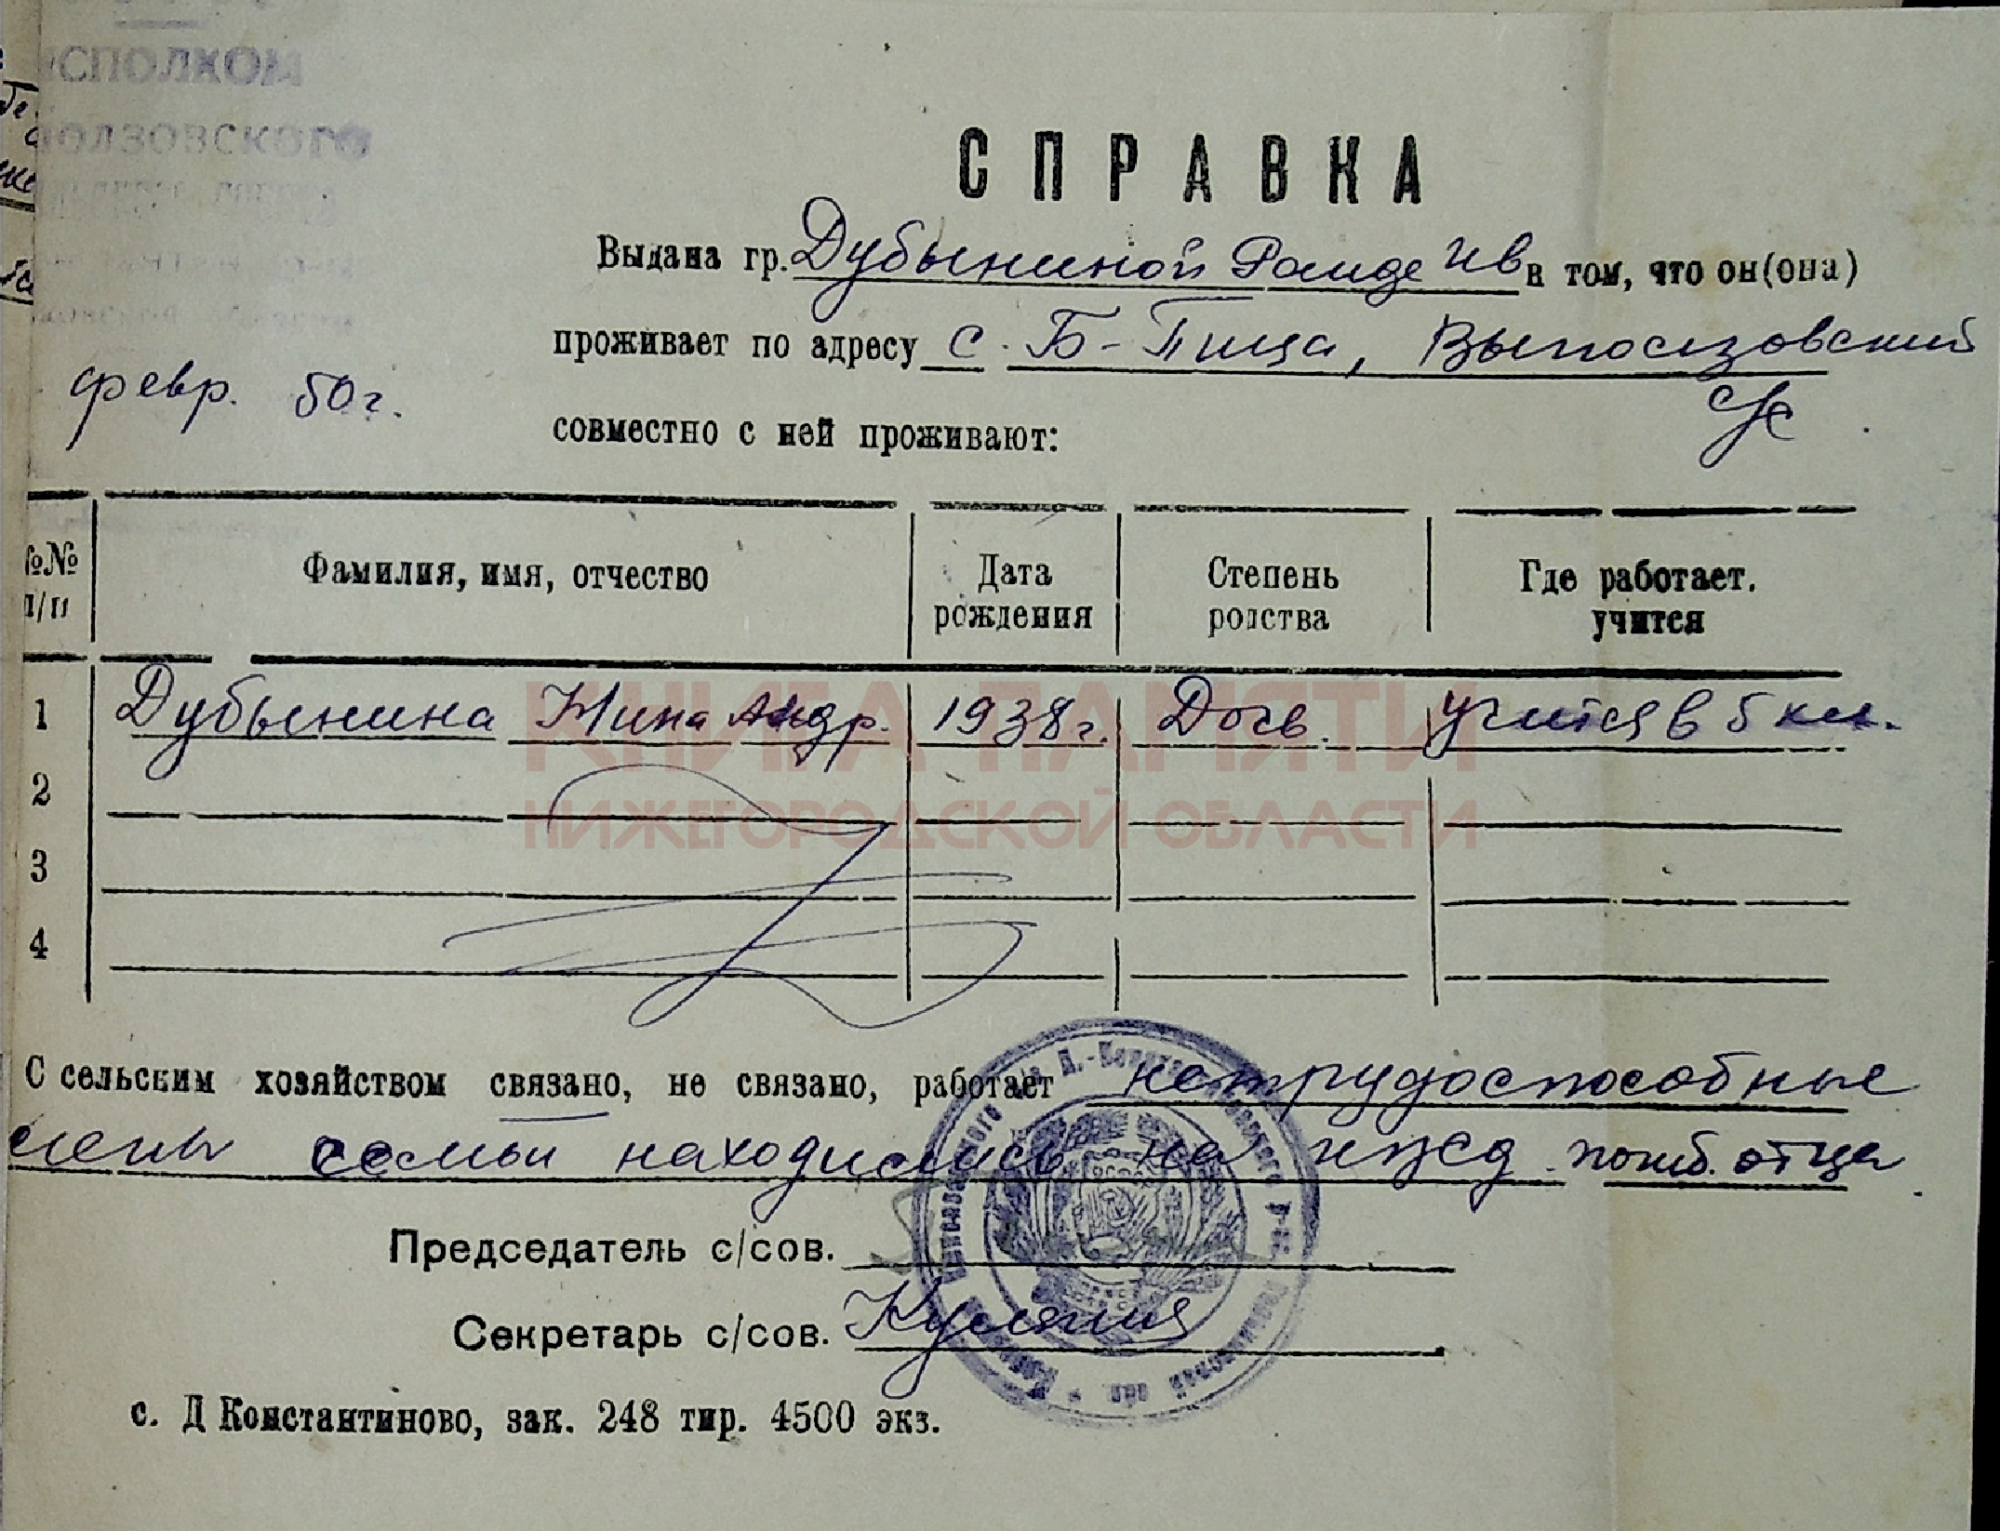 ИСПОЛКОМ
ПОЛЗОВСКОГО
СПРАВКА
Выдана гр. Дубыниной Раиде Ив в том, что он(она)
проживает по адресу с. Б-Пица, Выползовский
с/с.
февр. 50 г.
совместно с ней проживают:
№№ п/п Фамилия, имя, отчество Дата рождения Степень родства Где работает. учится
1 Дубынина Нина Андр. 1938 г. Дочь. Учится в 5 кл.
2
3
4
КНИГА ПАМЯТИ
НИЖЕГОРОДСКОЙ ОБЛАСТИ
С сельским хозяйством связано, не связано, работает нетрудоспособные
члены семьи находились на ижд. погиб. отца
Председатель с/сов.
Секретарь с/сов.
с. Д Константиново, зак. 248 тир. 4500 экз.